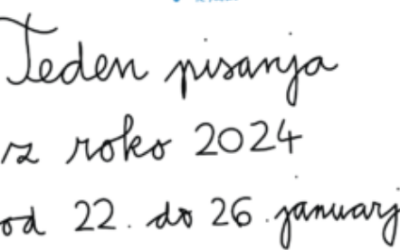 Teden pisanja
z roko 2024
od 22. do 26. januarj